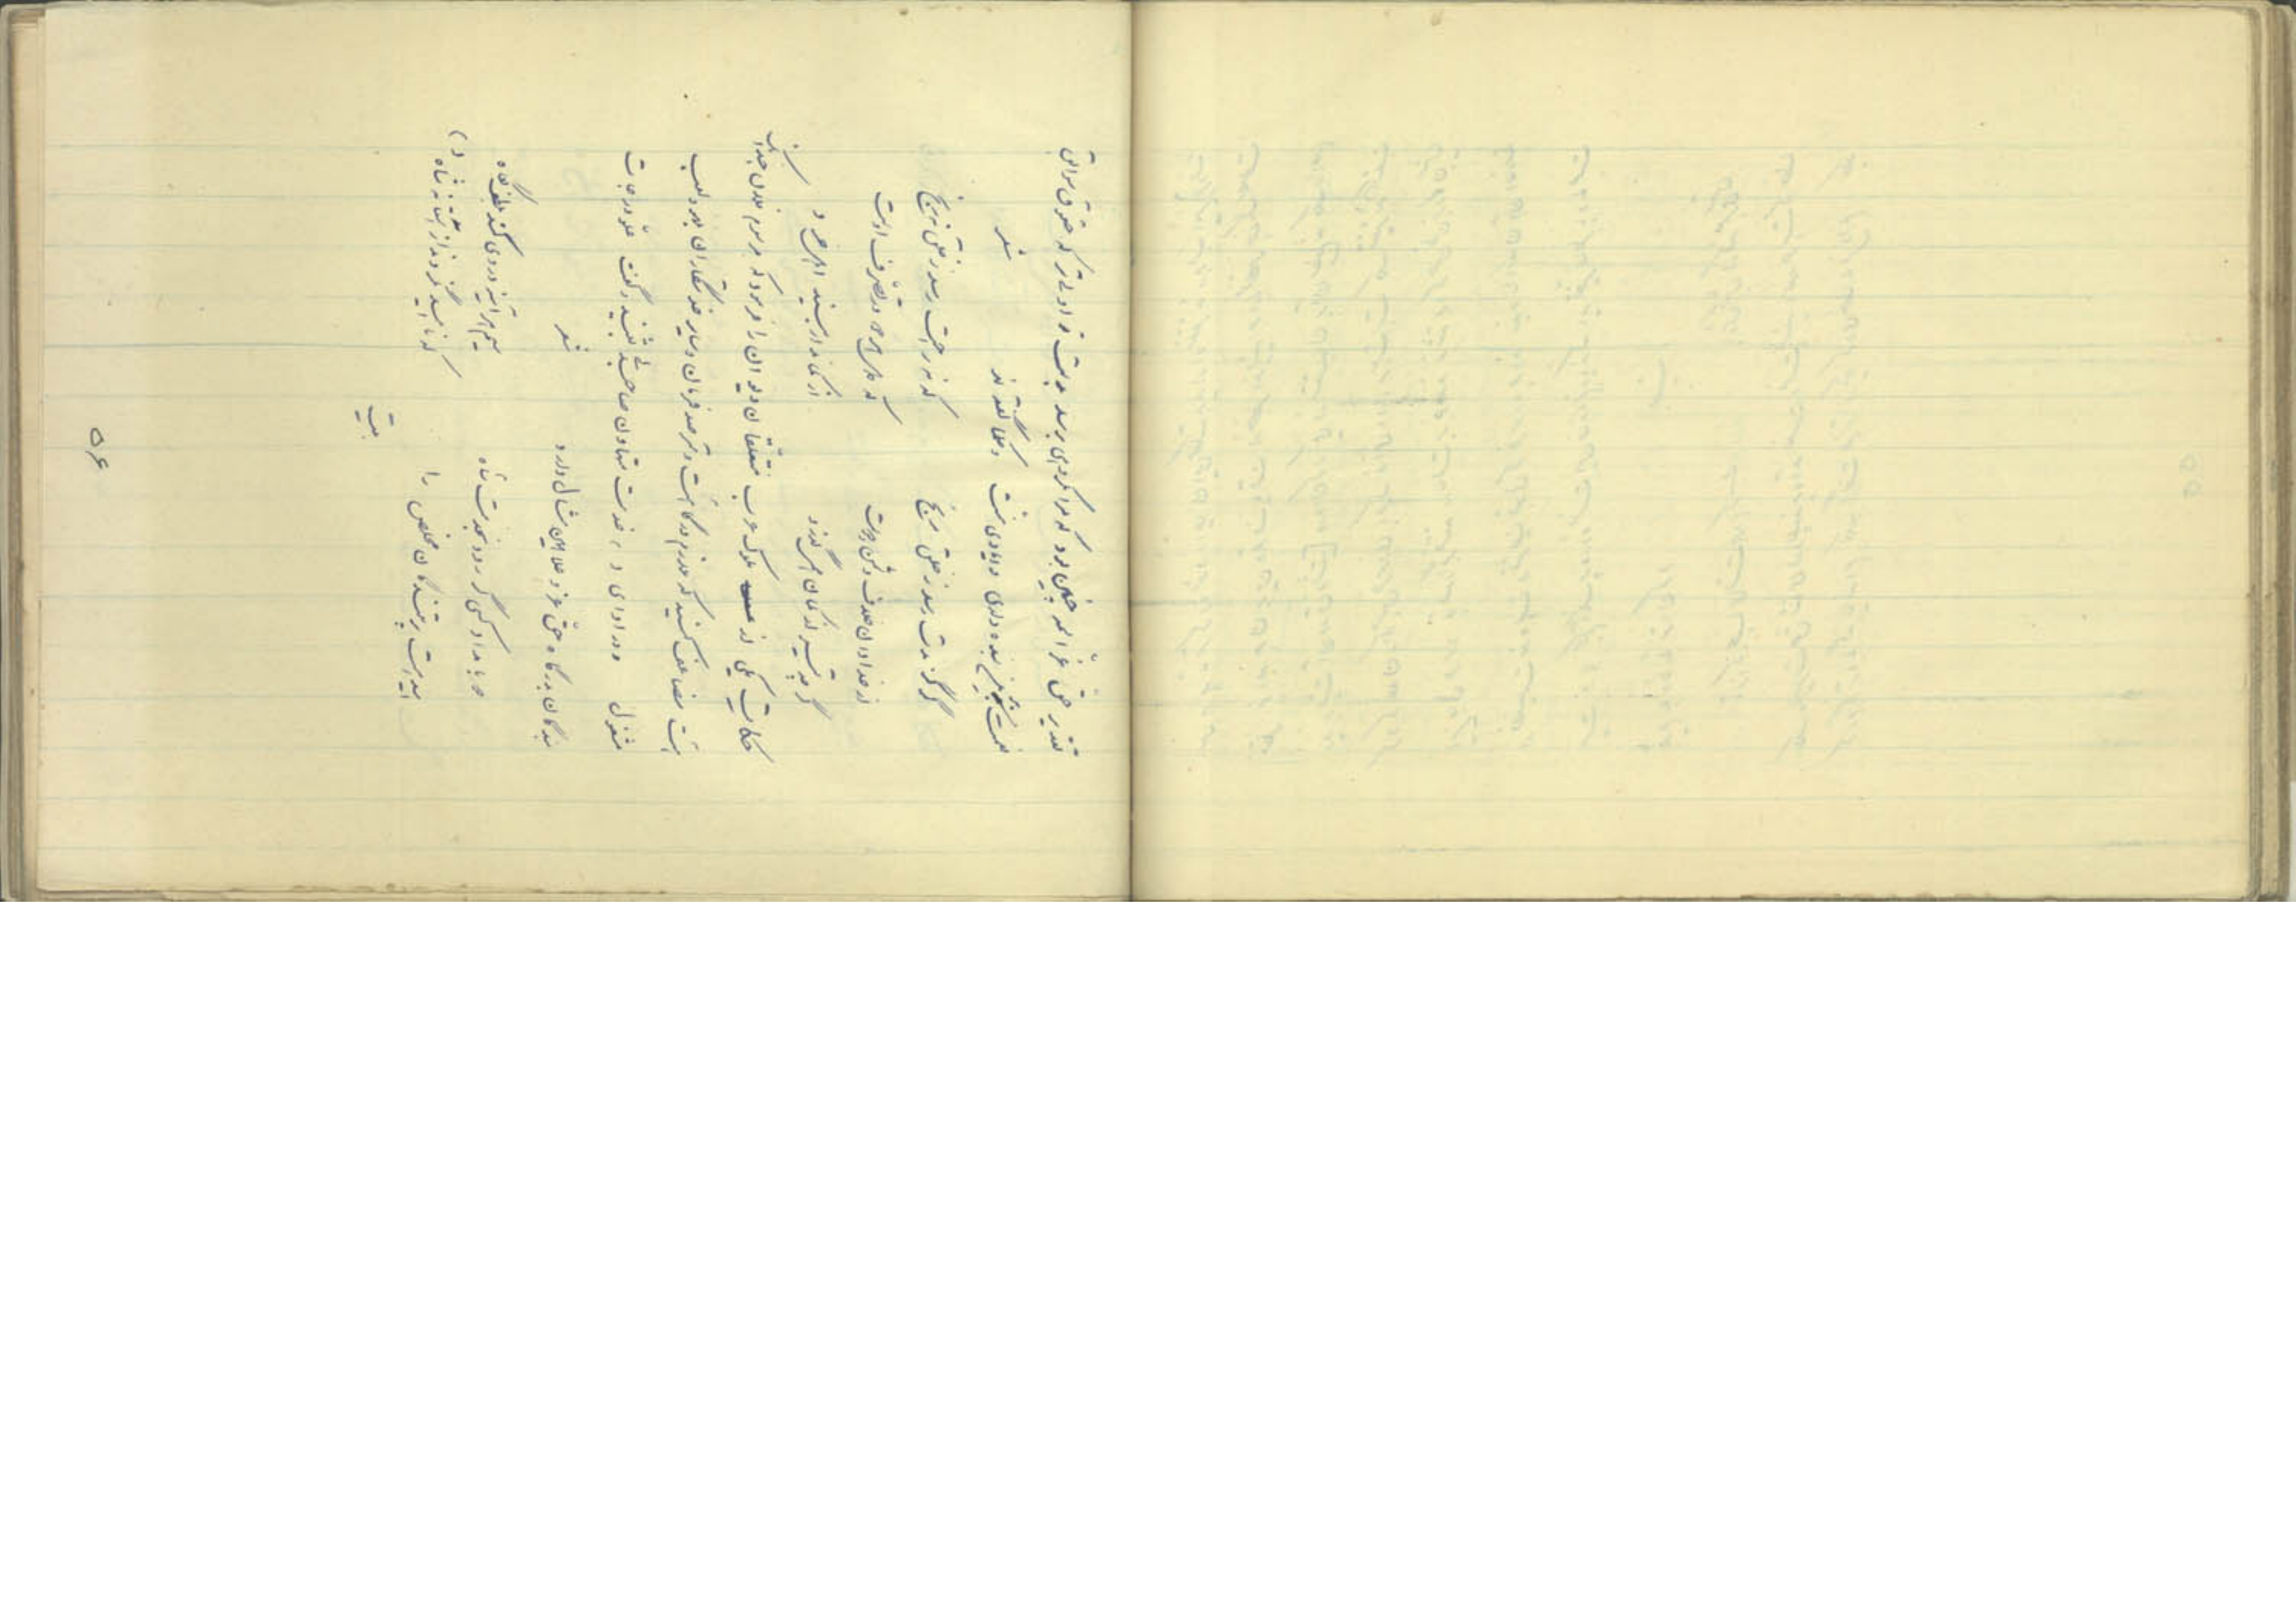 تقدیر حق عز اسمه چنین بود که مرا مکروهی برسد بدست تو اولیتر که حقوق سوابق
نعمت بر این بنده داری و ایادی منت و حکما گفته اند شعر
گر گزندت رسد ز خلق مرنج که نه راحت رسد ز خلق نه رنج
از خدا دان خلاف دشمن و دوست که دل هر دو در تصرف اوست
گر چه تیر از کمان همی گذرد از کماندار بیند اهل خرد
حکایت یکی از ملوک عرب متعلقان دیوان را فرمود که مرسوم فلان چندانک
هست مضاعف کنید که ملازم درگاهست و مترصد فرمان و سایر خدمتکاران بلهو و لعب
مشغول و در ادای خدمت متهاون صاحبدلی بشنید و گفت علو درجات
بندگان بدرگاه حق عز و علا همین مثال دارد شعر
دو بامداد کسی گر رود بخدمت شاه سیم هر آینه در وی کند بلطف نگاه
امید هست پرستندگان مخلص را که ناامید نگردند ز آستانه شاه
بیت
۵۶